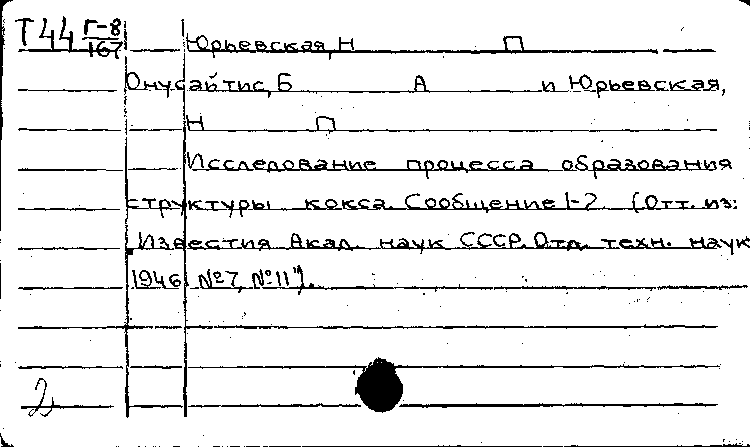 Т44 Г-8/167 Юрьевская, Н П
Онусайтис, Б А и Юрьевская,
Н П
Исследование процесса образования
структуры кокса. Сообщение 1-2 (Отт. из:
"Известия Акад. наук СССР. Отд. техн. наук
1946 №7, №11").
2